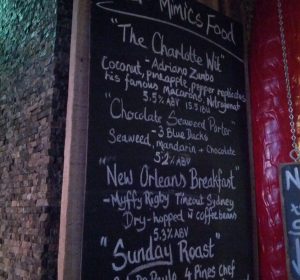 Mimics Food
"The Charlotte Wit"
- Adriano Zumbo
Coconut, pineapple, pepper replicates
his famous macarons. Nutrogenat
5.5% ABV 15.5 IBU
"Chocolate Seaweed Porter"
- 3 Blue Ducks
Seaweed, mandarin + chocolate
5.2% ABV
"New Orleans Breakfast"
- Myffy Rigby Timeout Sydney
Dry-hopped w coffee beans
5.3% ABV
"Sunday Roast"
4 Pines Chef